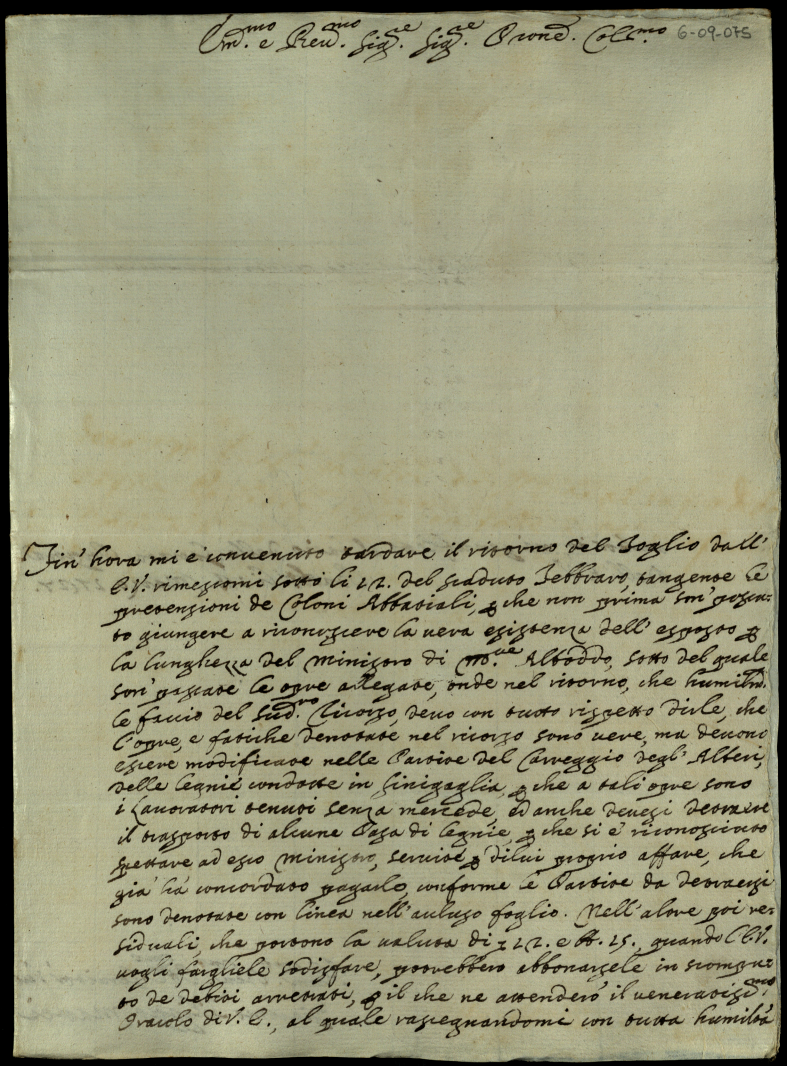 Em.mo e Reu.mo Sig.re Sig.re Prone. Col.mo 6-09-075
Sin' hora mi è conuenuto tardare il ritorno del Foglio dall'
E.V. rimessomi sotto li 22. del scaduto Febbraro, tangente le
pretensioni de Coloni Abbatiali, p che non prima son' possu-
to giungere a riconoscere la uera esistenza dell' esposto p
la lunghezza del Ministro di Altoddo, sotto del quale
son' passate le opre allegate, onde nel ritorno, che humilm.
le faccio del sud.to Ricorso, deuo con tutto rispetto dirle, che
l'opre, e fatiche denotate nel ricorso sono uere, ma deuono
essere modificate nelle Partite del Carreggio degl' Alberi,
delle legnie condotte in Sinigaglia, p che a tali opre sono
i Lauoratori tenuti senza mercede, ed anche deuesi detraere
il trasporto di alcune Passa di legnie, p che si è riconosciuto
spettare ad esso Ministro, seruite p di lui proprio affare, che
già hà concordato pagarlo, conforme le Partite da detraersi
sono denotate con linea nell'acluso foglio. Nell'altre poi re-
siduali, che portono la ualuta di 22. e 25., quando l'E.V.
uogli fargliele sodisfare, potrebbero abbonarsele in scompu-
to de debiti arretrati, p il che ne attenderò il ueneratiss.mo
Oracolo di V.E., al quale rassegnandomi con tutta humiltà